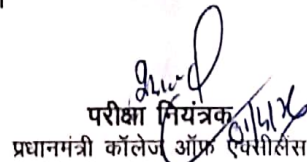 परीक्षा नियंत्रक
प्रधानमंत्री कॉलेज ऑफ एक्सीलेंस